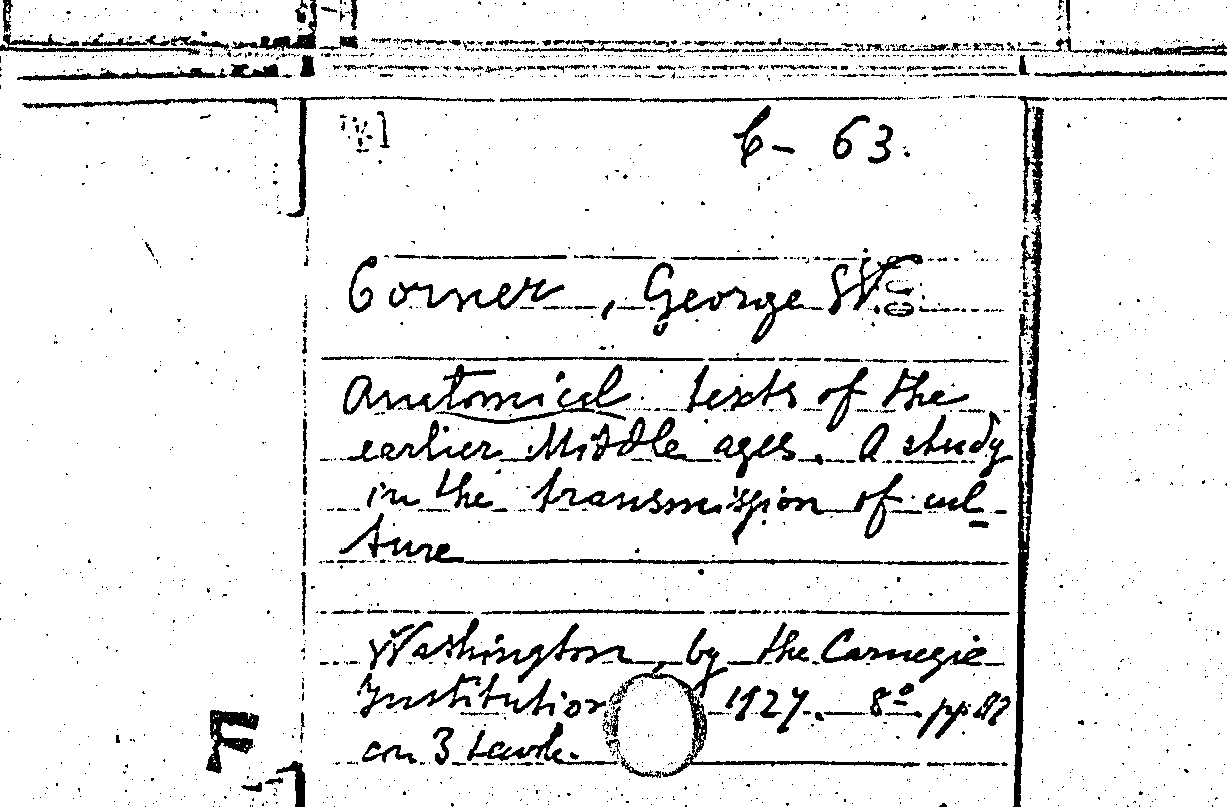 C- 63.
Corner, George W.
Anatomical texts of the
earlier Middle ages. A study
in the transmission of cul
ture
Washington, by the Carnegie
Institution 1927. 8º pp.
con 3 tavole.
F